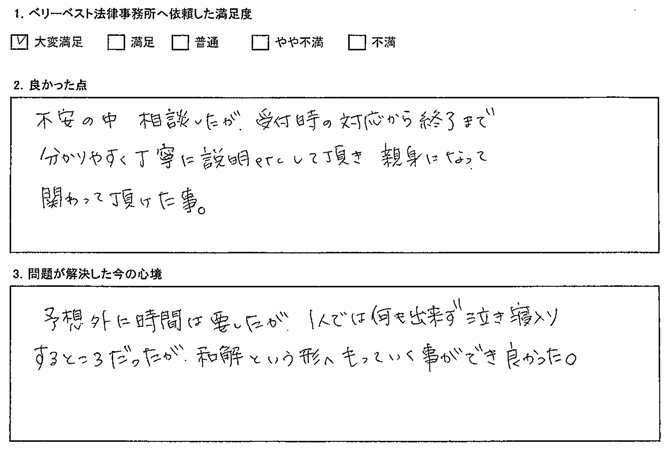 1. ベリーベスト法律事務所へ依頼した満足度
大変満足 満足 普通 やや不満 不満
2. 良かった点
不安の中 相談したが、受付時の対応から終了まで
分かりやすく丁寧に説明etcして頂き 親身になって
関わって頂けた事。
3. 問題が解決した今の心境
予想外に時間は要したが、1人では何も出来ず泣き寝入り
するところだったが、和解という形へもっていく事ができ良かった。